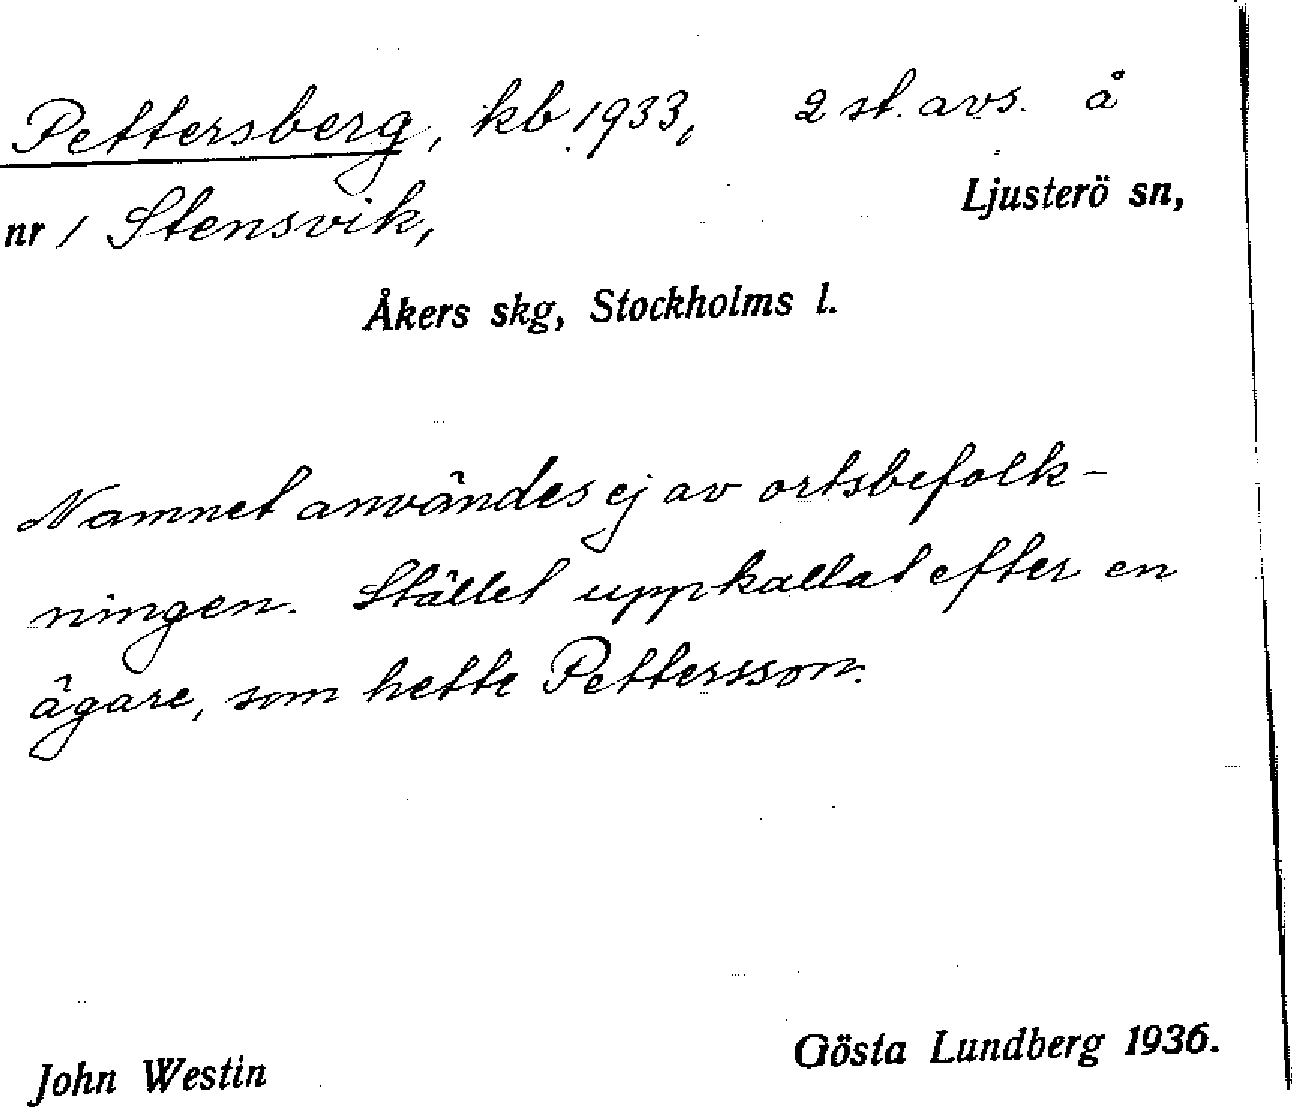 Pettersberg, kb 1933, 2 st. avs. å
nr 1 Stensvik, Ljusterö sn,
Åkers skg, Stockholms l.
Namnet användes ej av ortsbefolk-
ningen. Stället uppkallat efter en
ägare, som hette Pettersson.
John Westin Gösta Lundberg 1936.